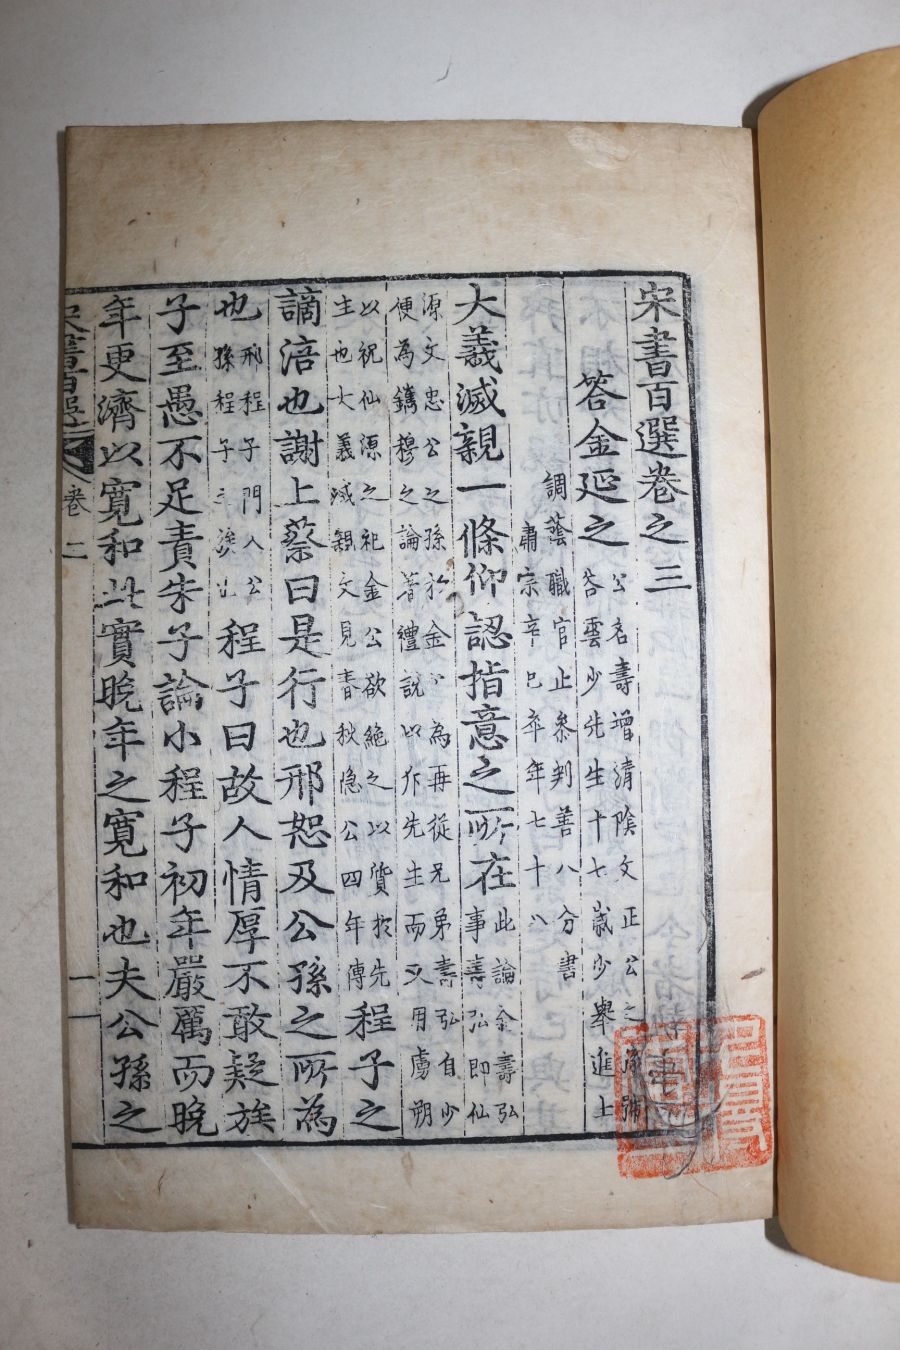 宋書百選卷之三
答金延之 公名壽增清陰文正公之孫號
谷雲少先生十七歲少舉進士
調蔭職官止參判善八分書
肅宗辛巳卒年七十八
大義滅親一條仰認指意之所在 此論金壽弘
事壽弘即仙
源文忠公之孫於金公為再從兄弟壽弘自少
便為鑴穆之論著禮說以斥先生而又用虜朔
以祝仙源之祀金公欲絶之以質於先
生也大義滅親文見春秋隱公四年傳
程子之
謫涪也謝上蔡曰是行也邢恕及公孫之所為
也 邢程子門人公
孫程子
程子曰故人情厚不敢疑族
子至愚不足責朱子論小程子初年嚴厲而晩
年更濟以寬和此實晩年之寬和也夫公孫之
宋書百選
卷